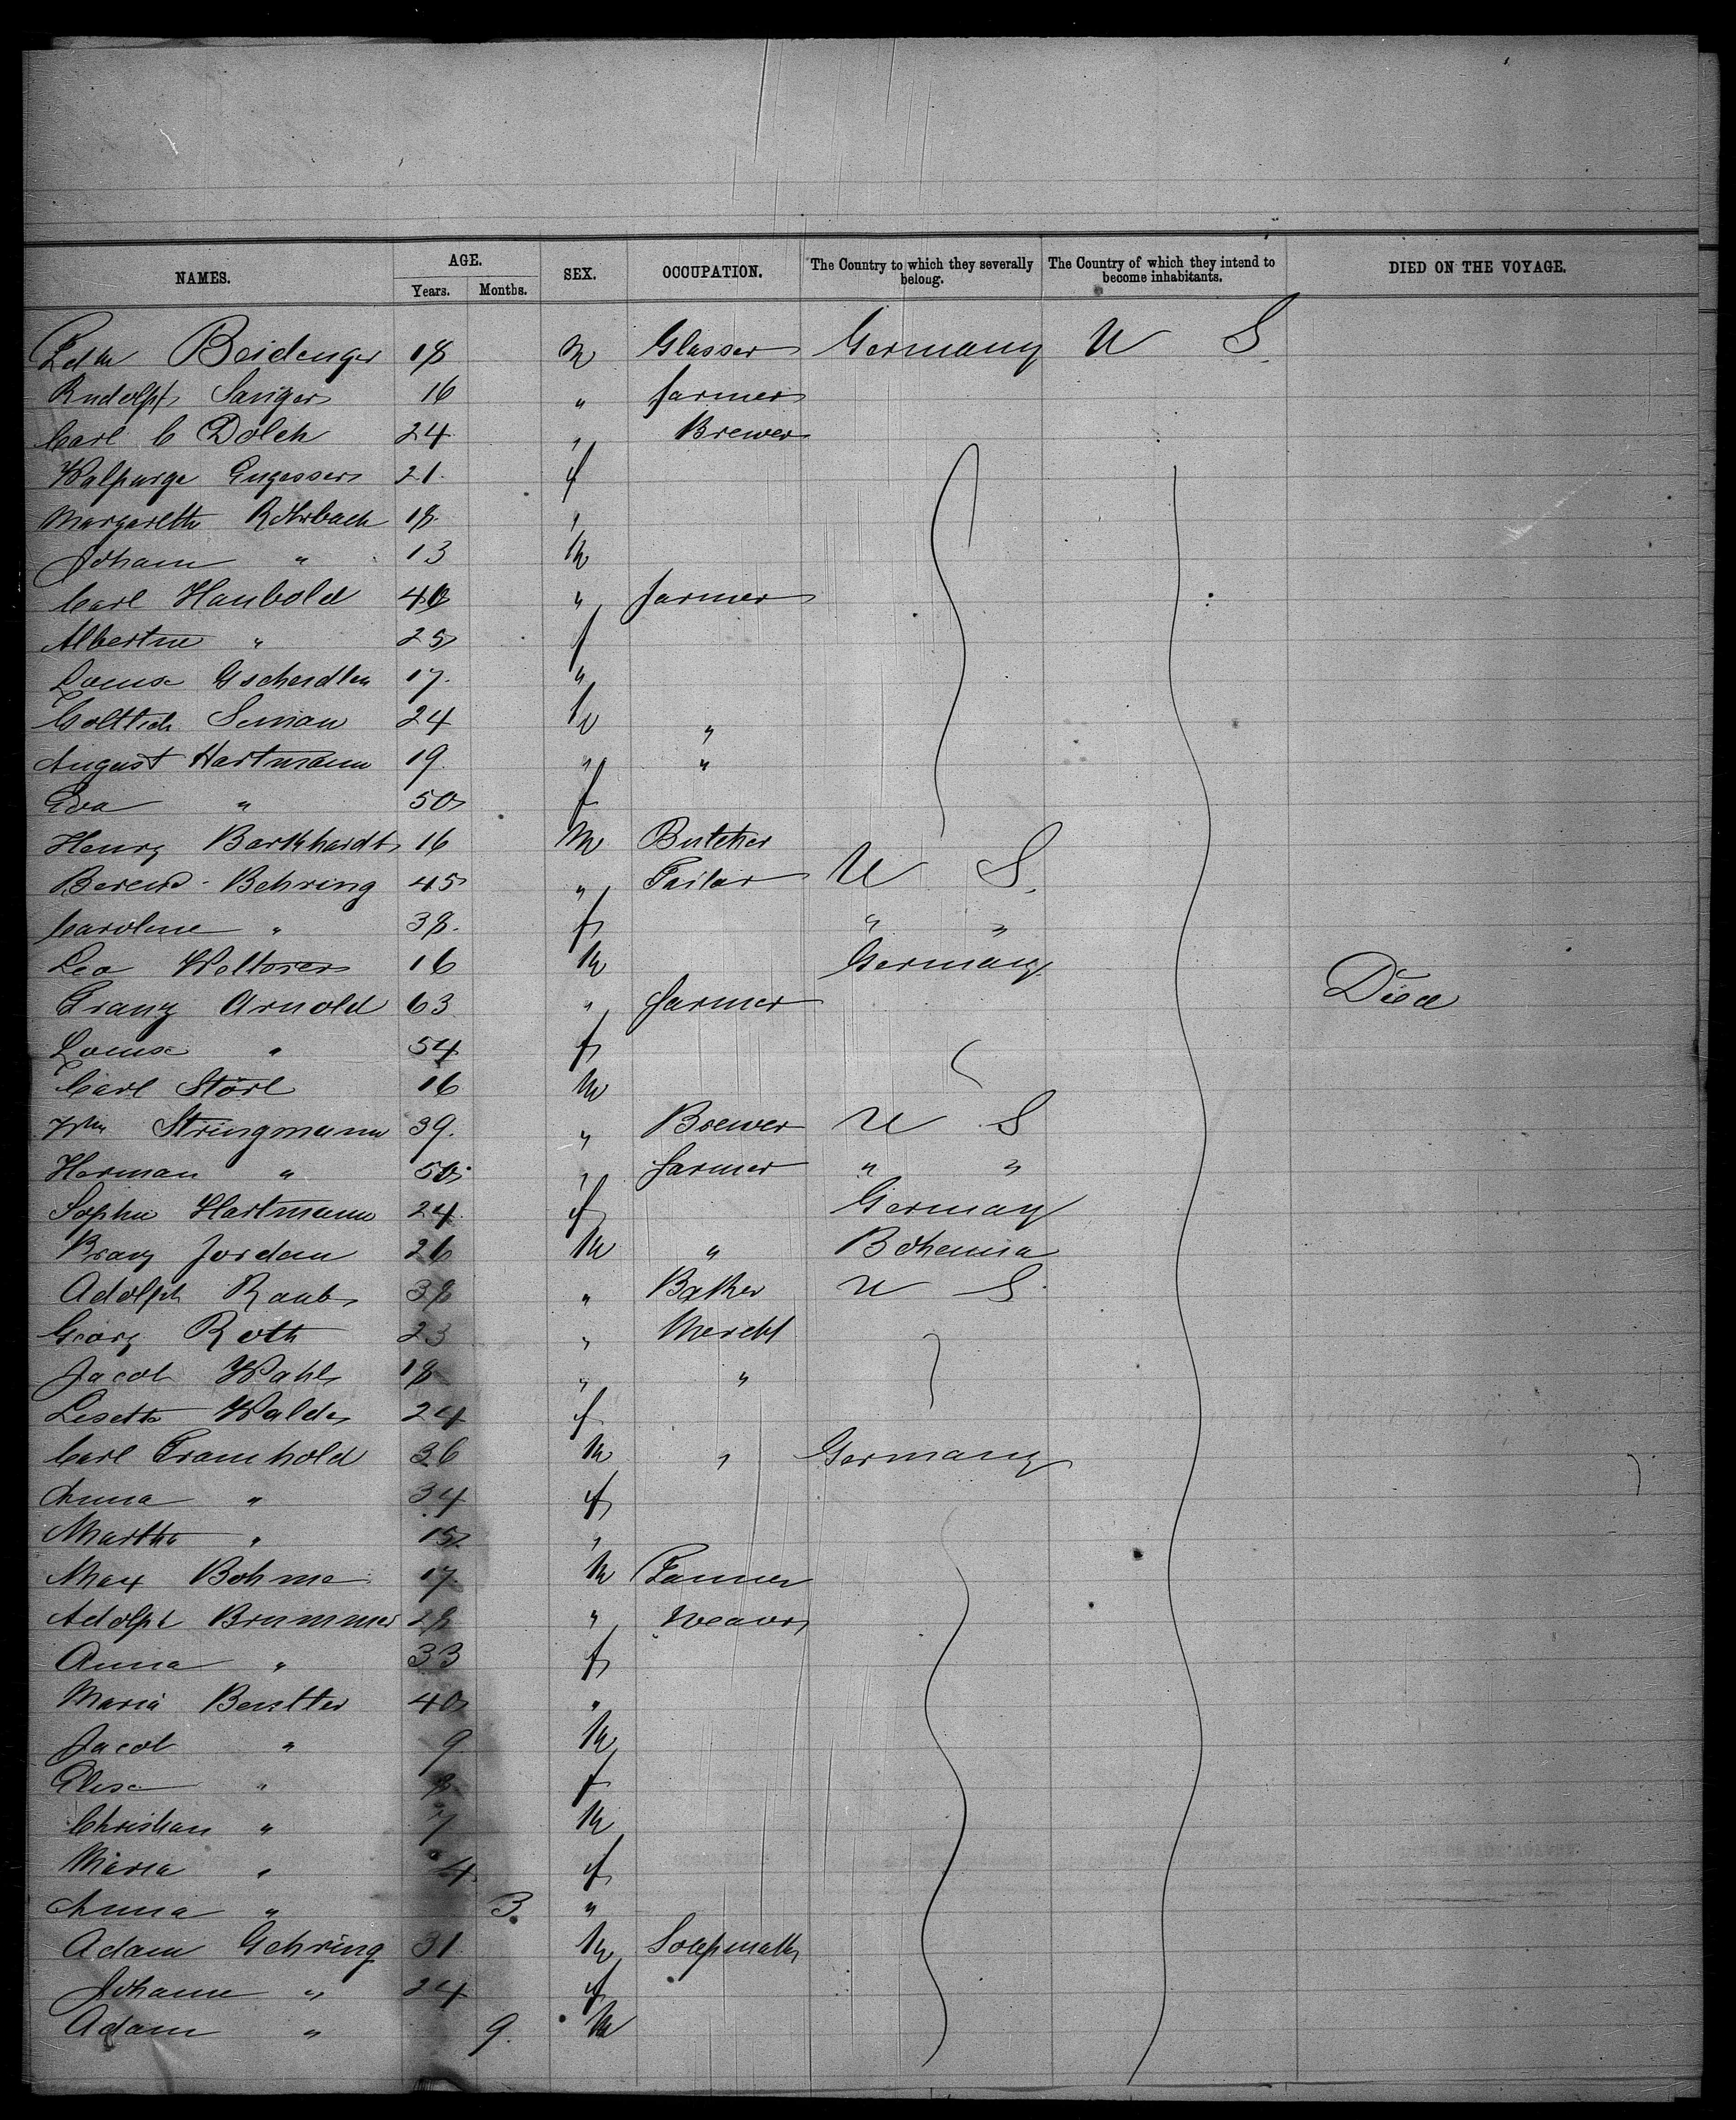 NAMES. AGE. SEX. OCCUPATION. The Country to which they severally belong. The Country of which they intend to become inhabitants. DIED ON THE VOYAGE.
Years. Months.
Beidenger 18 m Glasser Germany U S
Rudolph Sanger 16 " farmer
Carl C Dolch 24 " Brewer
Walpurga Engesser 21 f
Margaretha Rohrbach 18 "
Johann " 13 m
Carl Haubold 48 " farmer
Albertine " 25 f
Louise Gscheidlen 17 "
Gottlieb 24 m "
August Hartmann 19 " "
Eva " 50 f
Henry Barkhardt 16 m Butcher
Berend Behring 45 " Tailor U S
Caroline " 38 f " "
Leo Welterer 16 m Germany
Franz Arnold 63 " farmer Died
Louise " 54 f
Carl Störl 16 m
Wm Stringmann 39 " Brewer U S
Herman " 50 " farmer " "
Sophie Hartmann 24 f Germany
Franz Jordan 26 m " Bohemia
Adolph Raub 38 " Baker U S
Georg Roth 23 " Mercht
Jacob Wahl 18 " "
Lisette Walde 24 f
Carl Tramhold 36 m " Germany
Anna " 34 f
Martha " 15 "
Max Bohme 17 m Tanner
Adolph Brummer 28 " Weaver
Anna " 33 f
Maria Beutler 40 "
Jacob " 9 m
Elise " 8 f
Christian " 7 m
Maria " 4 f
Anna " 3 "
Adam Gehring 31 m
Johanne " 24 f
Adam " 9 m